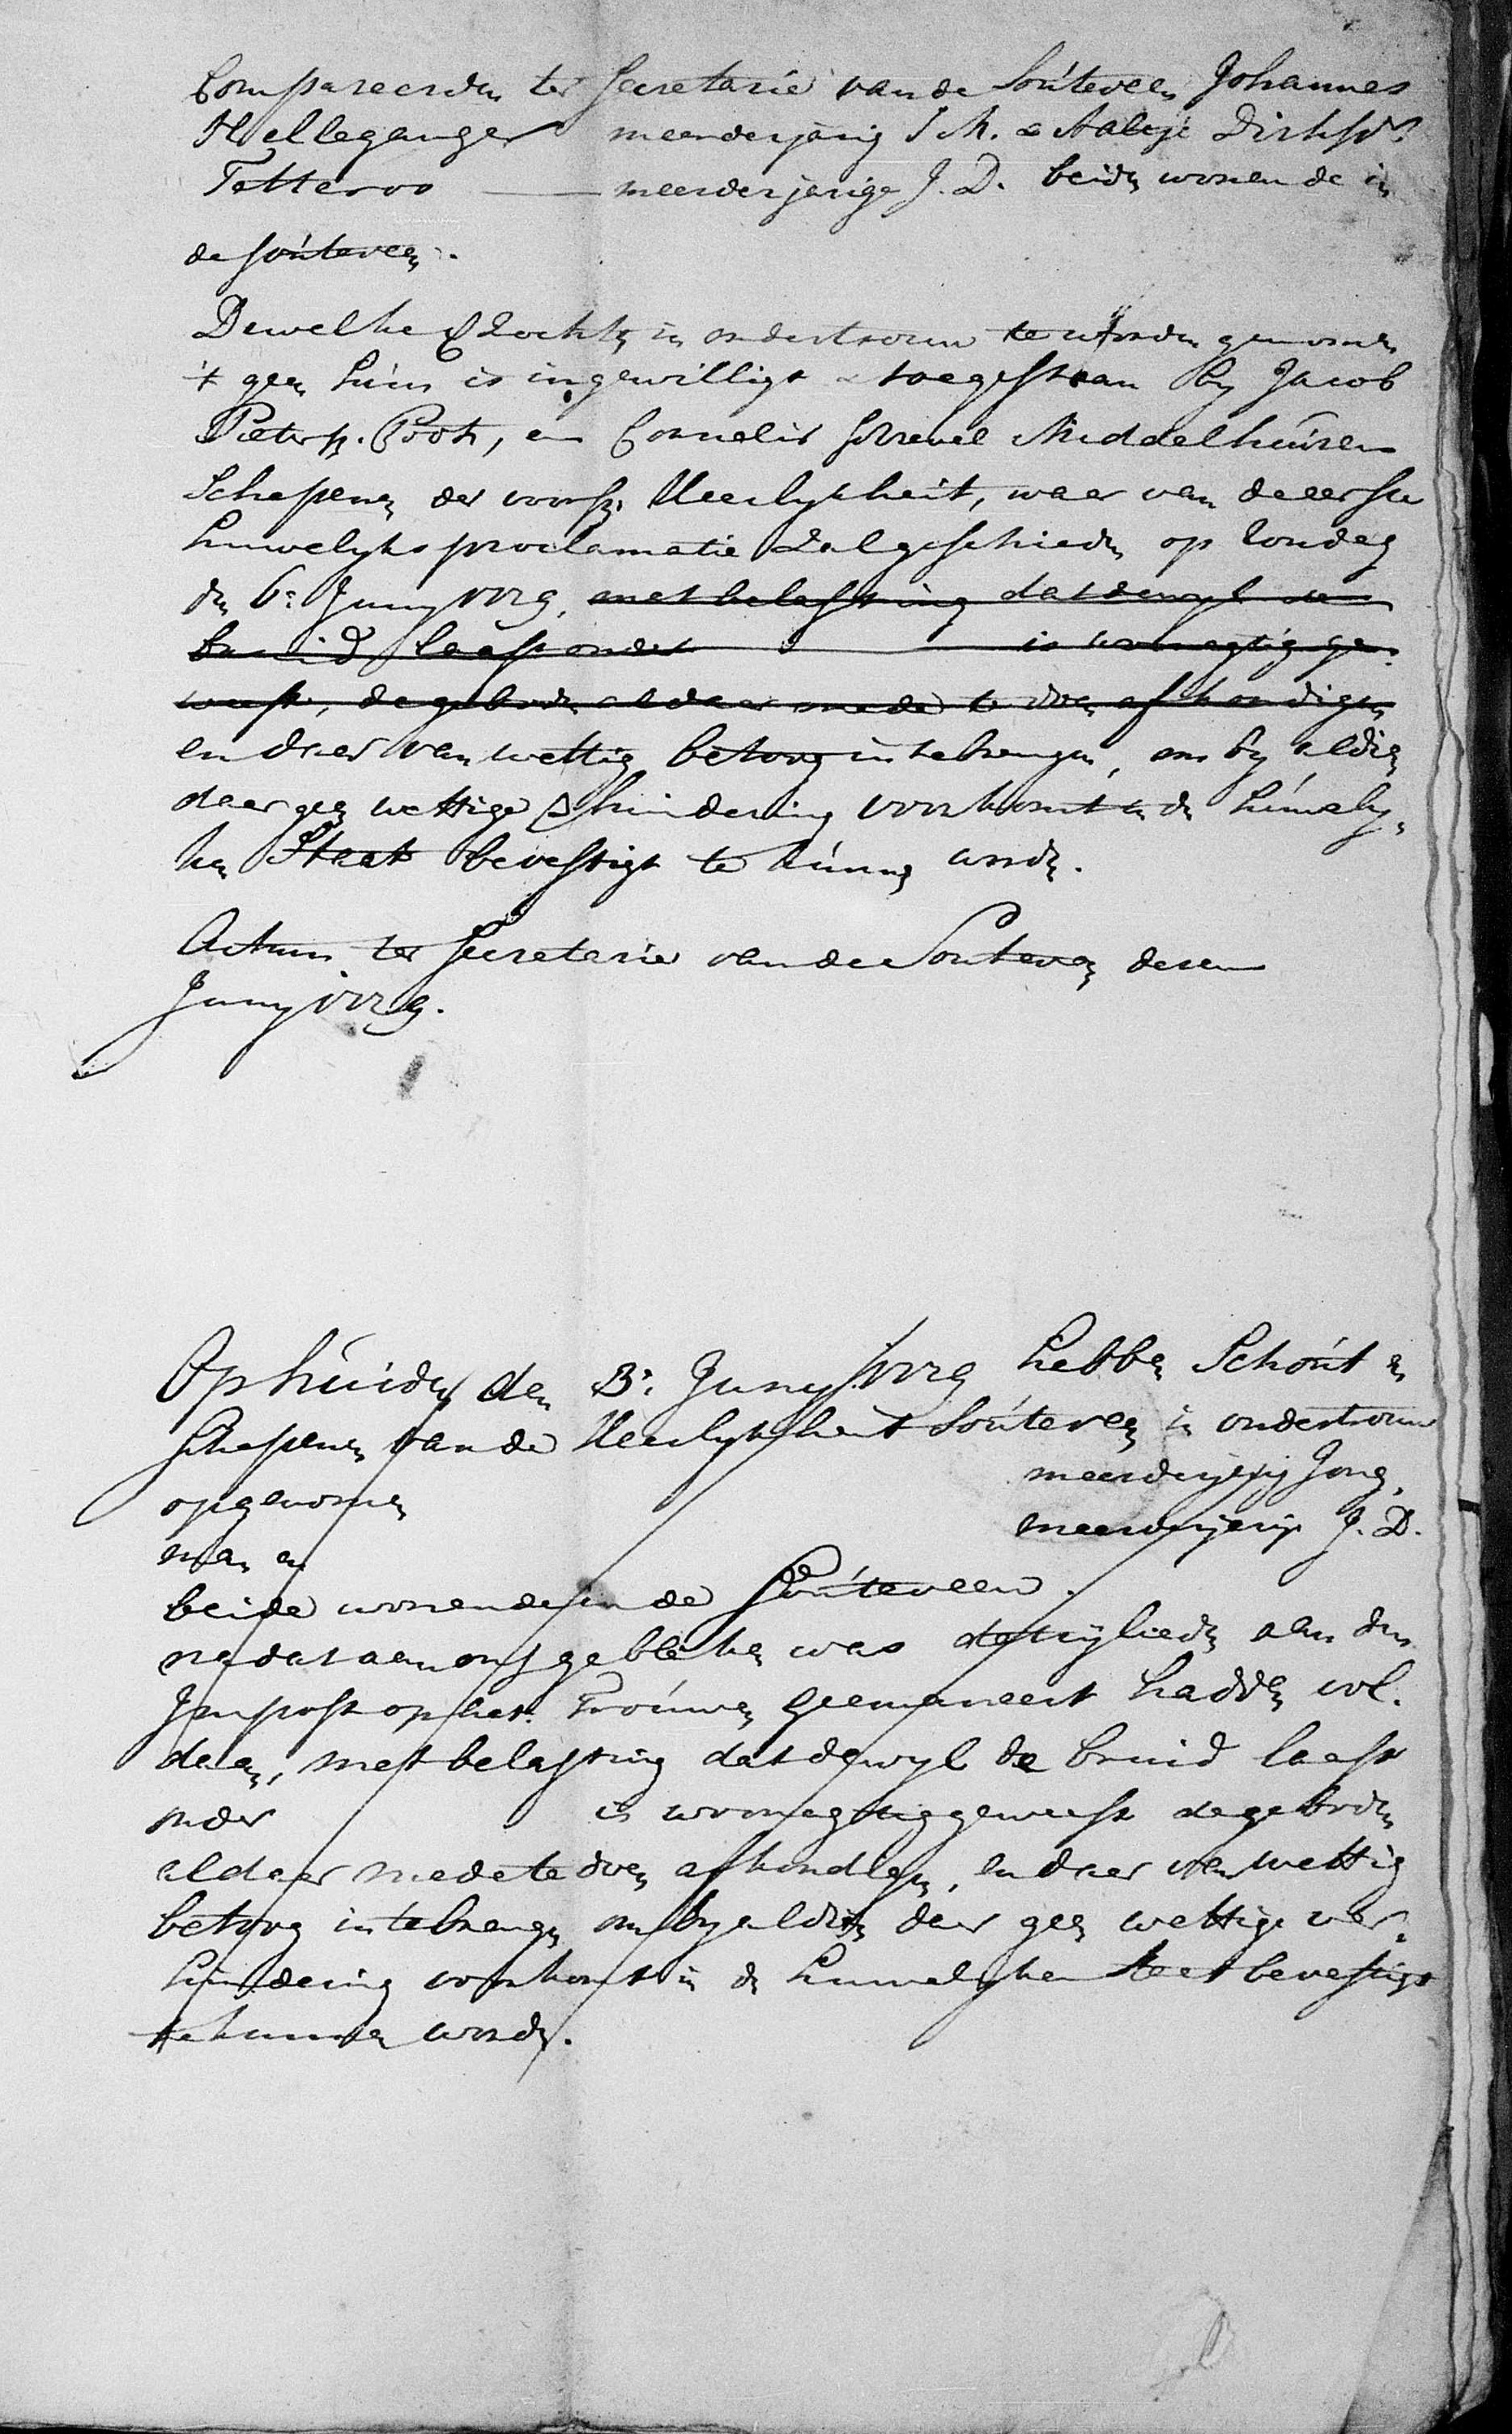 Compareerden ter Secretarie van de Souteveen Johannes
Helleganger meerderjarig J. M. & Aaltje Dirksdr
Tetteroo meerderjarige J. D. beide wonende in
de souteveen.
Dewelke versochten in ondertrouw te worden genomen
't geen huin is ingewilligt & toegestaan by Jacob
Pietersz. Poot, en Cornelis Middelhuisen
Schepenen der voorsz. Heerlykheit, waer van de eerste
huwelyks proclamatie zal geschieden op sondag
den 6e Juny 1779, met belasting dat dewyl de
bruid laast onder is woonagtig ge-
weest, de geboden aldaar mede te doen afkondigen
en daer van wettig betoog in te brengen, om by aldien
daer geen wettige verhindering voorkomt in de huwely-
ken Staat bevestigt te kunnen worden.
Actum ter Secretarie van de Souteveen desen
Juny 1779.
Op huiden den 3e Juny 1779 hebben Schout en
Schepenen van de Heerlykheit Souteveen in ondertrouw
opgenomen meerderjarig Jong
man en meerderjarige J. D.
beide wonende in de Souteveen.
na dat aen ons gebleken was dat zylieden aen den
Impost op het Trouwen geemaneert hadden vol-
daen, met belasting dat dewyl de bruid laast
onder is woonagtig geweest de geboden
aldaer mede te doen afkondigen, en daer van wettig
betoog in te brengen om by aldien daer geen wettige ver-
hindering voorkomt in de huwelyken staet bevestigt
te kunnen worden.